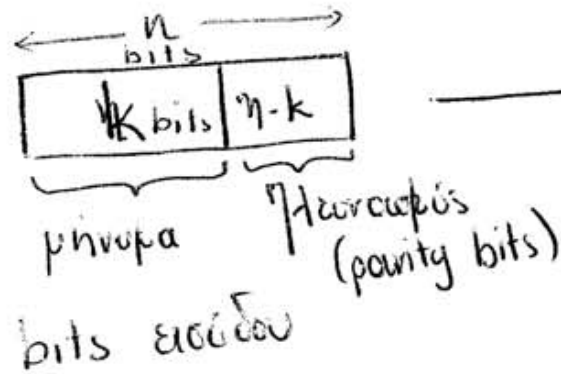 n
bits
k bits n-k
μήνυμα
πλεονασμός
(parity bits)
bits εισόδου